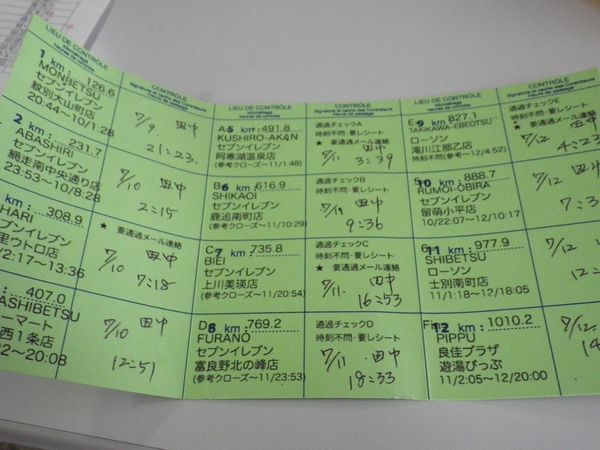 LIEU DE CONTRÔLE
CONTRÔLE
1 km : 126.6
MONBETSU
セブンイレブン
紋別大山町店
20:44～10/2:28
7/9 田中
21:23
2 km : 231.7
ABASHIRI
セブンイレブン
網走南中央通り店
23:53～10/8:28
7/10 田中
2:15
308.9
HARI
セブンイレブン
里ウトロ店
2:17～13:36
★ 要通過メール連絡
7/10 田中
7:18
407.0
ASHIBETSU
ーマート
西1条店
2～20:08
7/10 田中
12:51
LIEU DE CONTRÔLE
CONTRÔLE
A 5 km : 491.8
KUSHIRO-AKAN
セブンイレブン
阿寒湖温泉店
(参考クローズ～11/1:48)
通過チェックA
時刻不問・要レシート
★ 要通過メール連絡
7/11 田中
3:39
B 6 km : 616.9
SHIKAOI
セブンイレブン
鹿追南町店
(参考クローズ～11/10:29)
通過チェックB
時刻不問・要レシート
田中
9:36
C 7 km : 735.8
BIEI
セブンイレブン
上川美瑛店
(参考クローズ～11/20:54)
通過チェックC
時刻不問・要レシート
★ 要通過メール連絡
7/11. 田中
16:53
D 8 km : 769.2
FURANO
セブンイレブン
富良野北の峰店
(参考クローズ～11/23:53)
通過チェックD
時刻不問・要レシート
7/11 田中
18:33
LIEU DE CONTRÔLE
CONTRÔLE
E 9 km : 827.1
TAKIKAWA-EBEOTSU
ローソン
滝川江部乙店
(参考クローズ～12/4:52)
通過チェックE
時刻不問・要レシート
★ 要通過メール連絡
7/12 田中
4:23
10 km : 888.7
RUMOI-OBIRA
セブンイレブン
留萌小平店
10/22:07～12/10:17
7/12 田中
7:3
11 km : 977.9
SHIBETSU
ローソン
士別南町店
11/1:18～12/18:05
7/12
12:
12 km : 1010.2
PIPPU
良佳プラザ
遊湯ぴっぷ
11/2:05～12/20:00
7/12
14